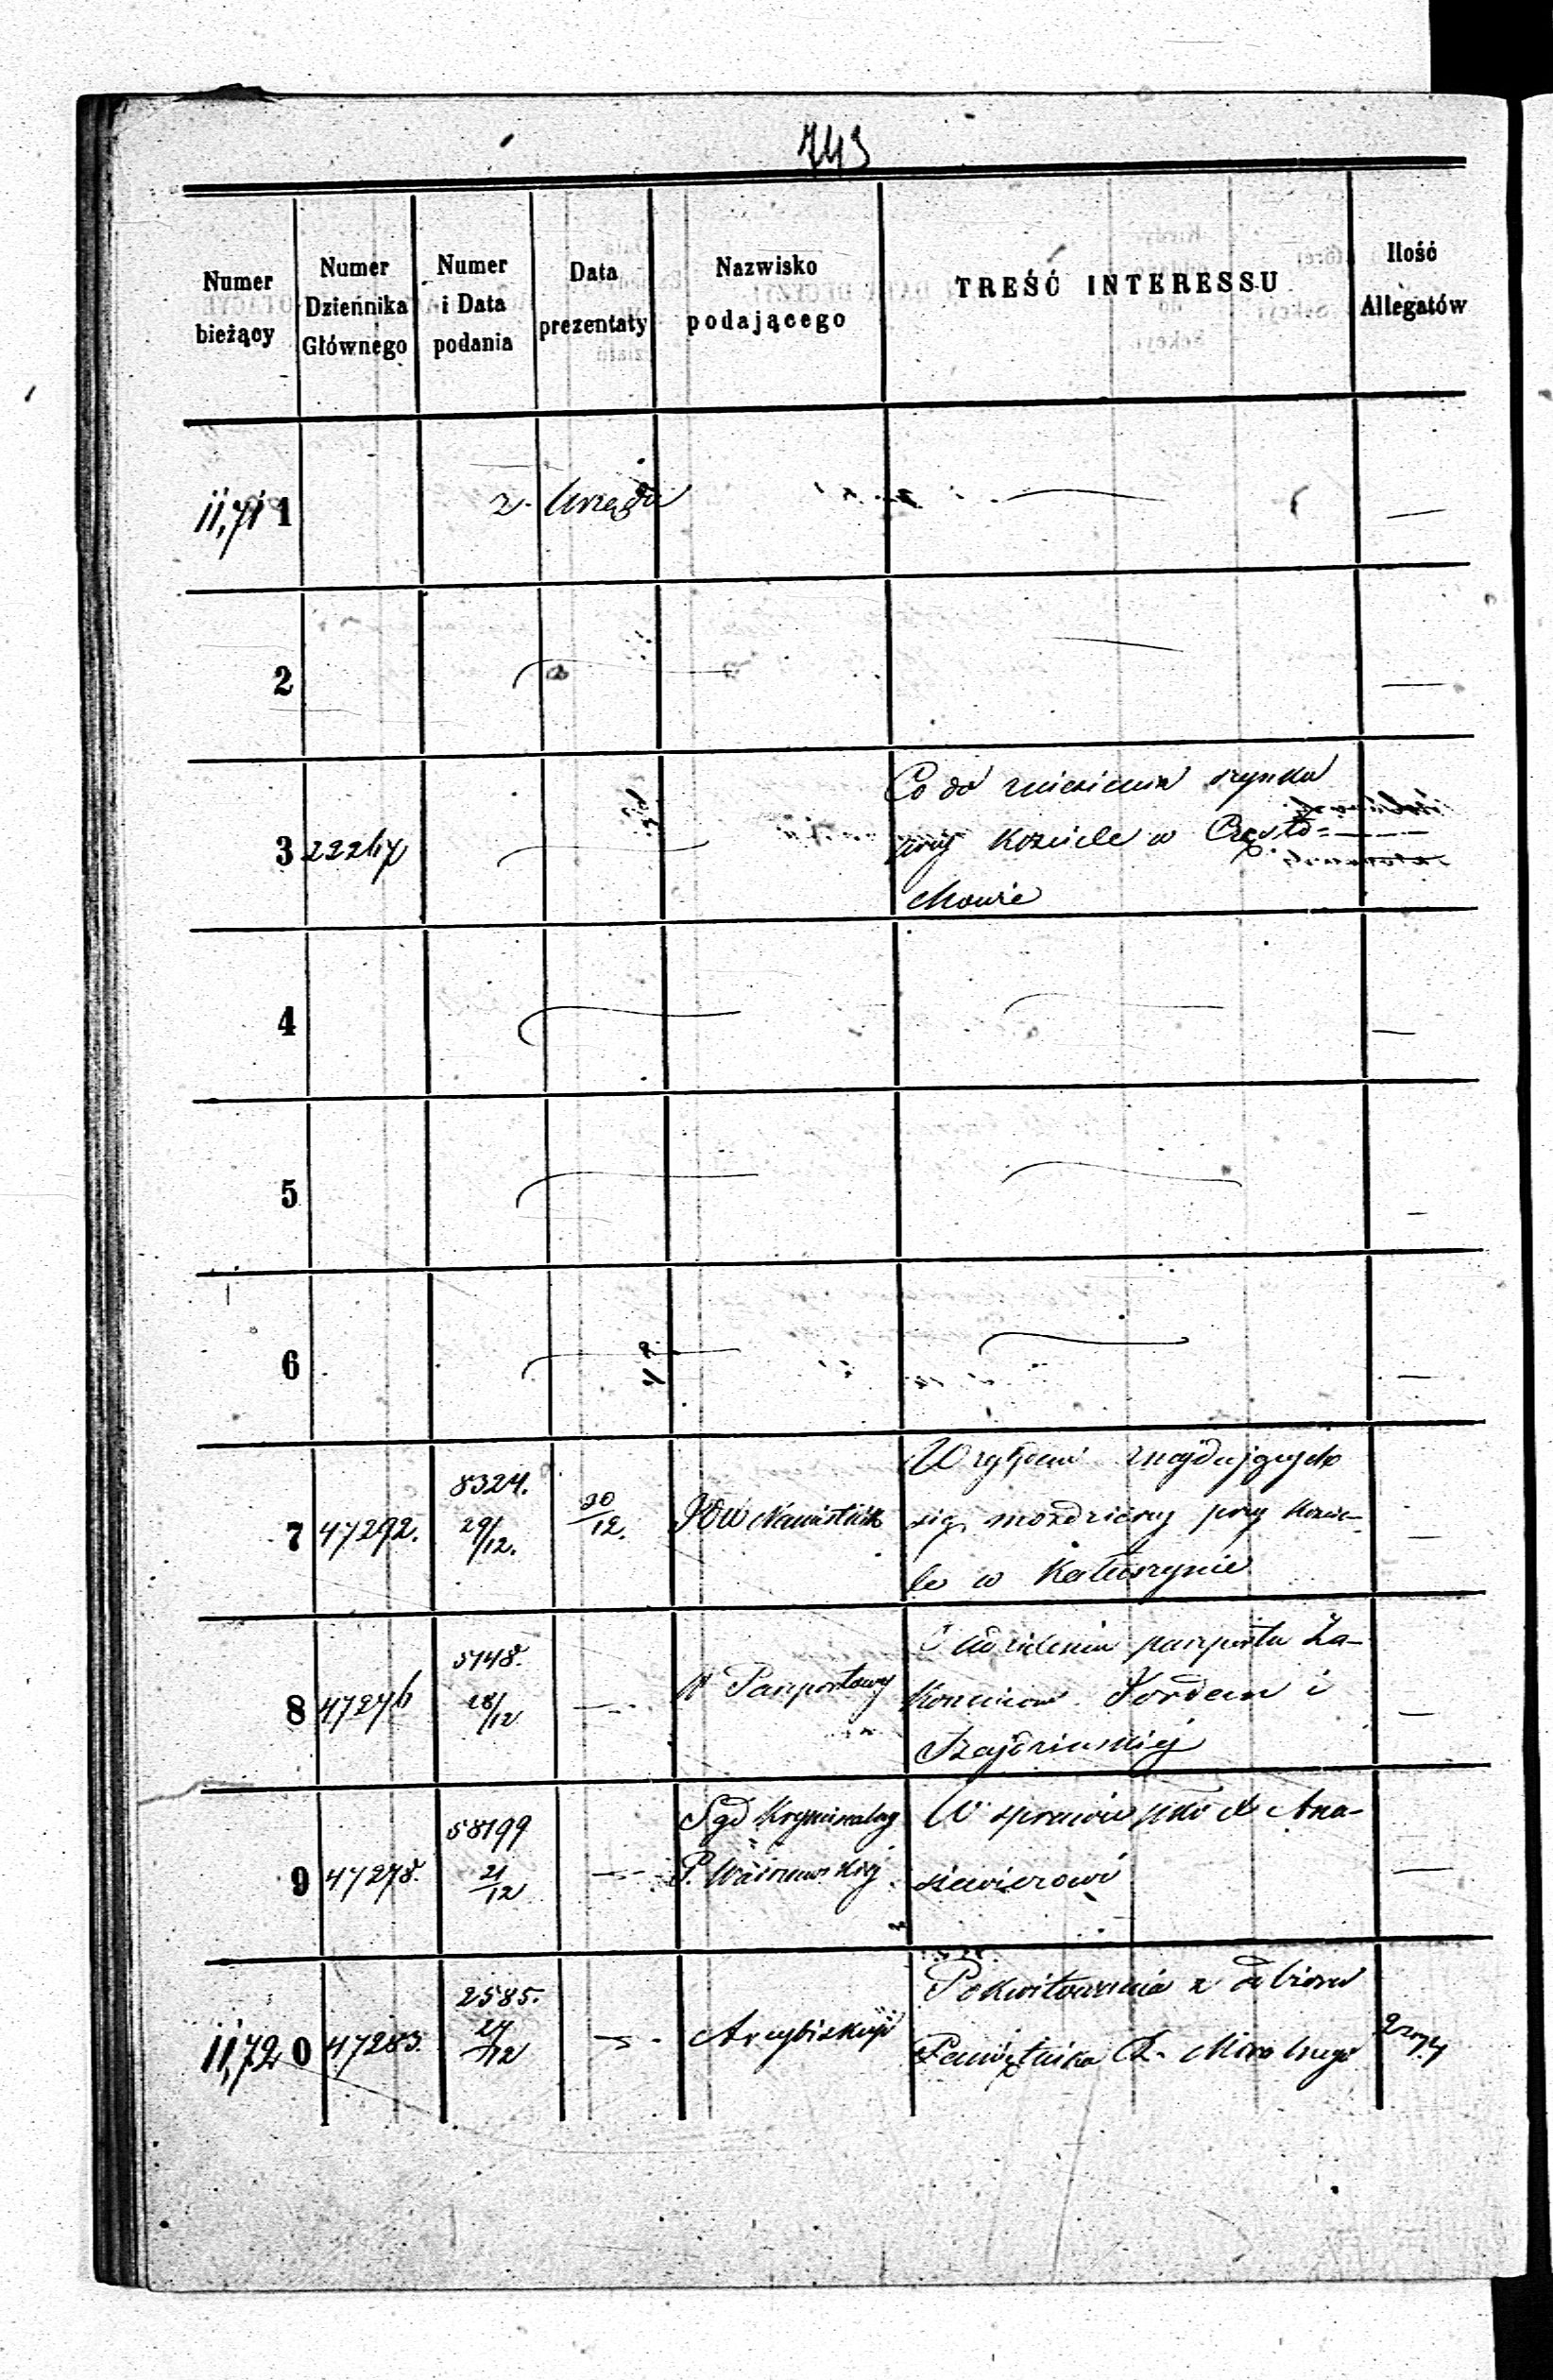 743
Numer bieżący
Numer Dziennika Głównego
Numer i Data podania
Data prezentaty
Nazwisko podającego
TREŚĆ INTERESSU
Ilość Allegatów
11,71 1 z Urzędu — —
2 — —
3 22267 Co do zniesienia szynku
przy Kościele w Często=
chowie —
4 — —
5 — —
6 — —
7 47292. 8324. 29/12. 30/12. Namiestnik
znajdujących
się moździerzy przy Kości-
le w Kałuszynie —
8 47276 5148. 28/12 — W Paszportowy
udzielenia paszportu Za-
konnicom Jordan i —
9 47278. 58199 21/12 — Sąd Kryminalny
P. Warszawskiej
W sprawie pko X Ana-
siewiczowi —
11,72 0 47283. 2585. 27/12 — Arcybiskup
Pokwitowania z odbioru
Pamiętnika R. Moralnego